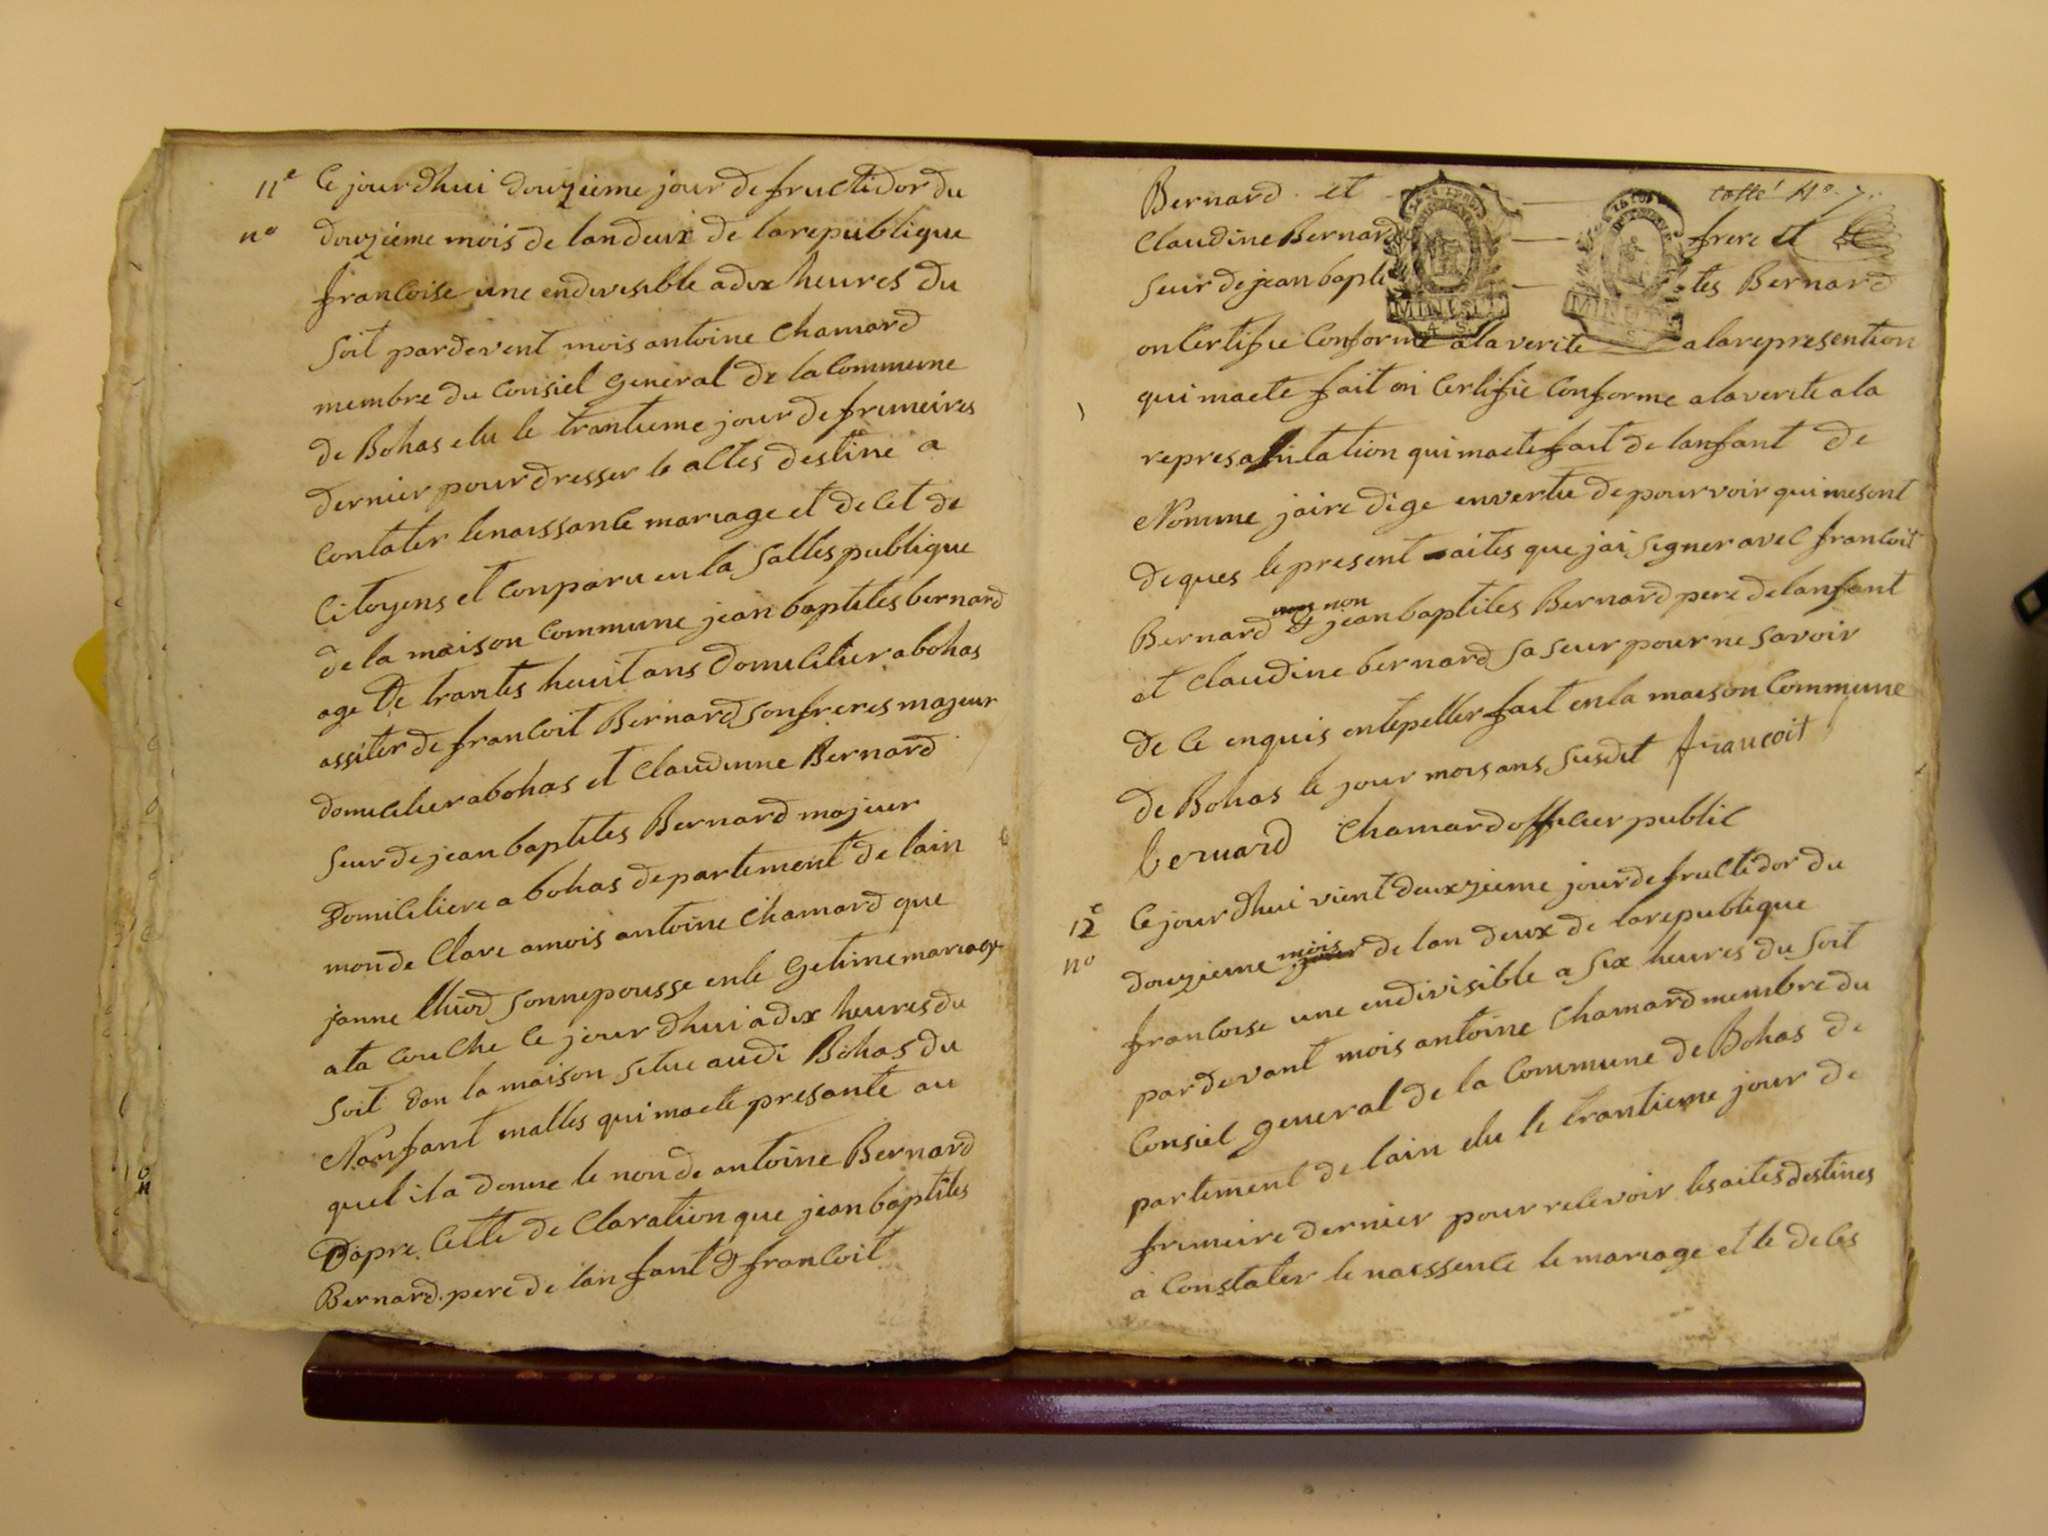 11e
no
Ce jourdhui douzieme jour de fructidor du
douzieme mois de lan deux de la republique
francoise une endivisible a dix heures du
soit pardevent mois antoine Chamard
membre du Consiel general de la Commune
de Bohas elu le trantieme jour de frimeires
dernier pour dresser le actes destine a
Contater lenaissance mariage et decet de
Citoyens et Conparu en la Salles publique
de la maison Commune jean baptites bernard
age de trantes heuit ans domicilier abohas
assiter de francoit Bernard son freres majeur
domicilier abohas et Claudinne Bernard
seur de jean baptites Bernard majeur
Domiciliere a bohas departement de lain
mon de Clare amois antoine Chamard que
janne sonnepousse enle Getime mariage
ata couche Ce jour dhui a dix heures du
soit dan la maison situe audi Bohas du
Nanfant malles qui maete presante au
quel il a donne le non de antoine Bernard
Dapre Cette de Claration que jean baptites
Bernard pere de lanfant & francoit
Cotté No. 7.
Bernard et
Claudine Bernard frere et
seur de jean bapti tes Bernard
on Certifie Conforme ala verite alarepresention
qui maete fait on Certifie Conforme alaverite ala
represantation qui maete fait de lanfant de
Nomme jaire dige envertu de pourvoir qui mesont
deques le present aites que jai signer avel francoit
non
Bernard & jean baptites Bernard pere de lanfant
et Claudine bernard sa seur pour ne savoir
de Ce enquis entepeller fait en la maison Commune
de Bohas le jour mois ans susdit francoit
bernard Chamard officier public
12e
no
Ce jourdhui vient deuxzieme jour de fructidor du
mois
douzieme jour de lan deux de larepublique
francoise une endivisible a six heures du soit
pardevant mois antoine Chamard membre du
Consiel general de la Commune de Bohas de
partement de lain elu le trantieme jour de
frimeire dernier pour relevoir lesaites destines
a Constater le naessence le mariage et le deces
MINUTE